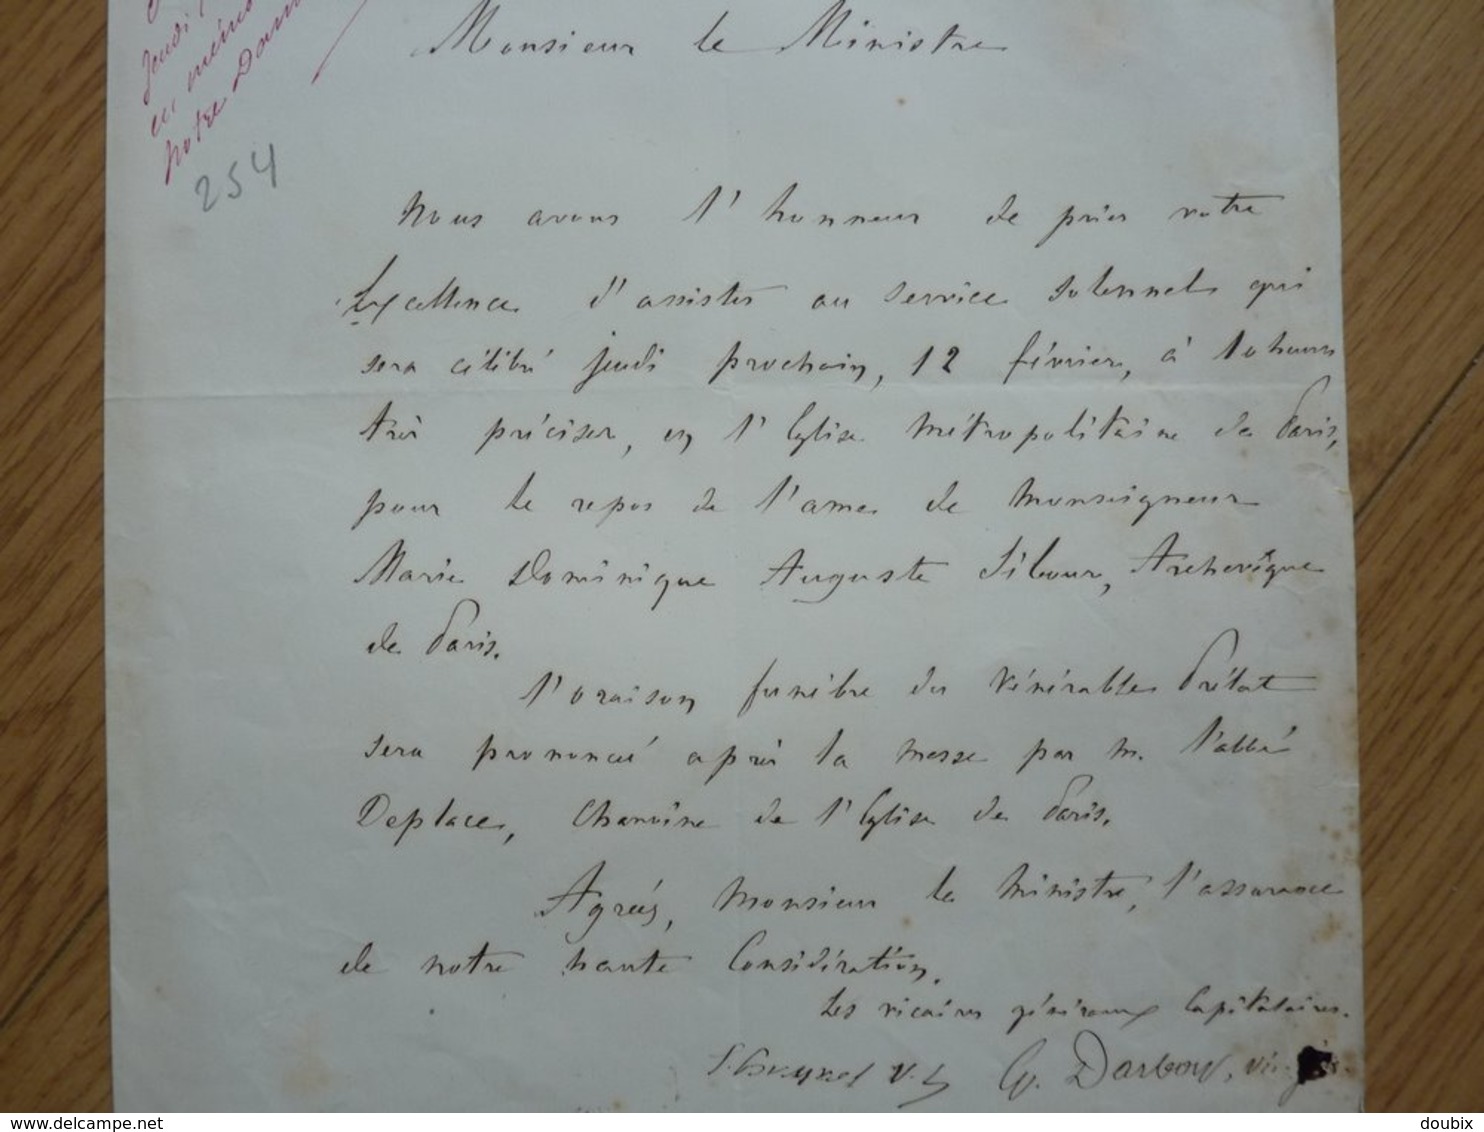 Jeudi
notre Dam
254
Monsieur le Ministre
Nous avons l'honneur de prier votre
Excellence d'assister au service solennel qui
sera célébré jeudi prochain, 12 février, à 10 heures
très précises, en l'Eglise Métropolitaine de Paris,
pour le repos de l'ame de Monseigneur
Marie Dominique Auguste Sibour, Archevêque
de Paris.
l'oraison funèbre du vénérable Prélat
sera prononcée après la messe par M. l'abbé
Deplace, Chanoine de l'Eglise de Paris.
Agréez, Monsieur le Ministre, l'assurance
de notre haute Considération.
Les vicaires généraux Capitulaires.
V. G. Darboy,
delcampe.net
doubix